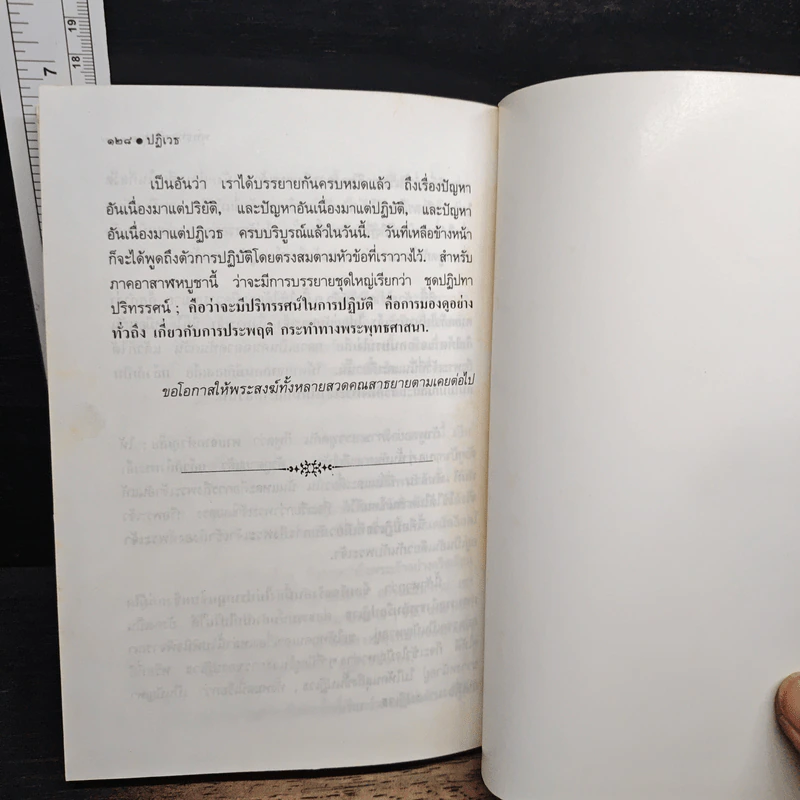 7
19
18
๑๒๘ ● ปฏิเวธ
เป็นอันว่า เราได้บรรยายกันครบหมดแล้ว ถึงเรื่องปัญหา
อันเนื่องมาแต่ปริยัติ, และปัญหาอันเนื่องมาแต่ปฏิบัติ, และปัญหา
อันเนื่องมาแต่ปฏิเวธ ครบบริบูรณ์แล้วในวันนี้. วันที่เหลือข้างหน้า
ก็จะได้พูดถึงตัวการปฏิบัติโดยตรงสมตามหัวข้อที่เราวางไว้. สำหรับ
ภาคอาสาฬหบูชานี้ ว่าจะมีการบรรยายชุดใหญ่เรียกว่า ชุดปฏิปทา
ปริทรรศน์ ; คือว่าจะมีปริทรรศน์ในการปฏิบัติ คือการมองดูอย่าง
ทั่วถึง เกี่ยวกับการประพฤติ กระทำทางพระพุทธศาสนา.
ขอโอกาสให้พระสงฆ์ทั้งหลายสวดคณสาธยายตามเคยต่อไป